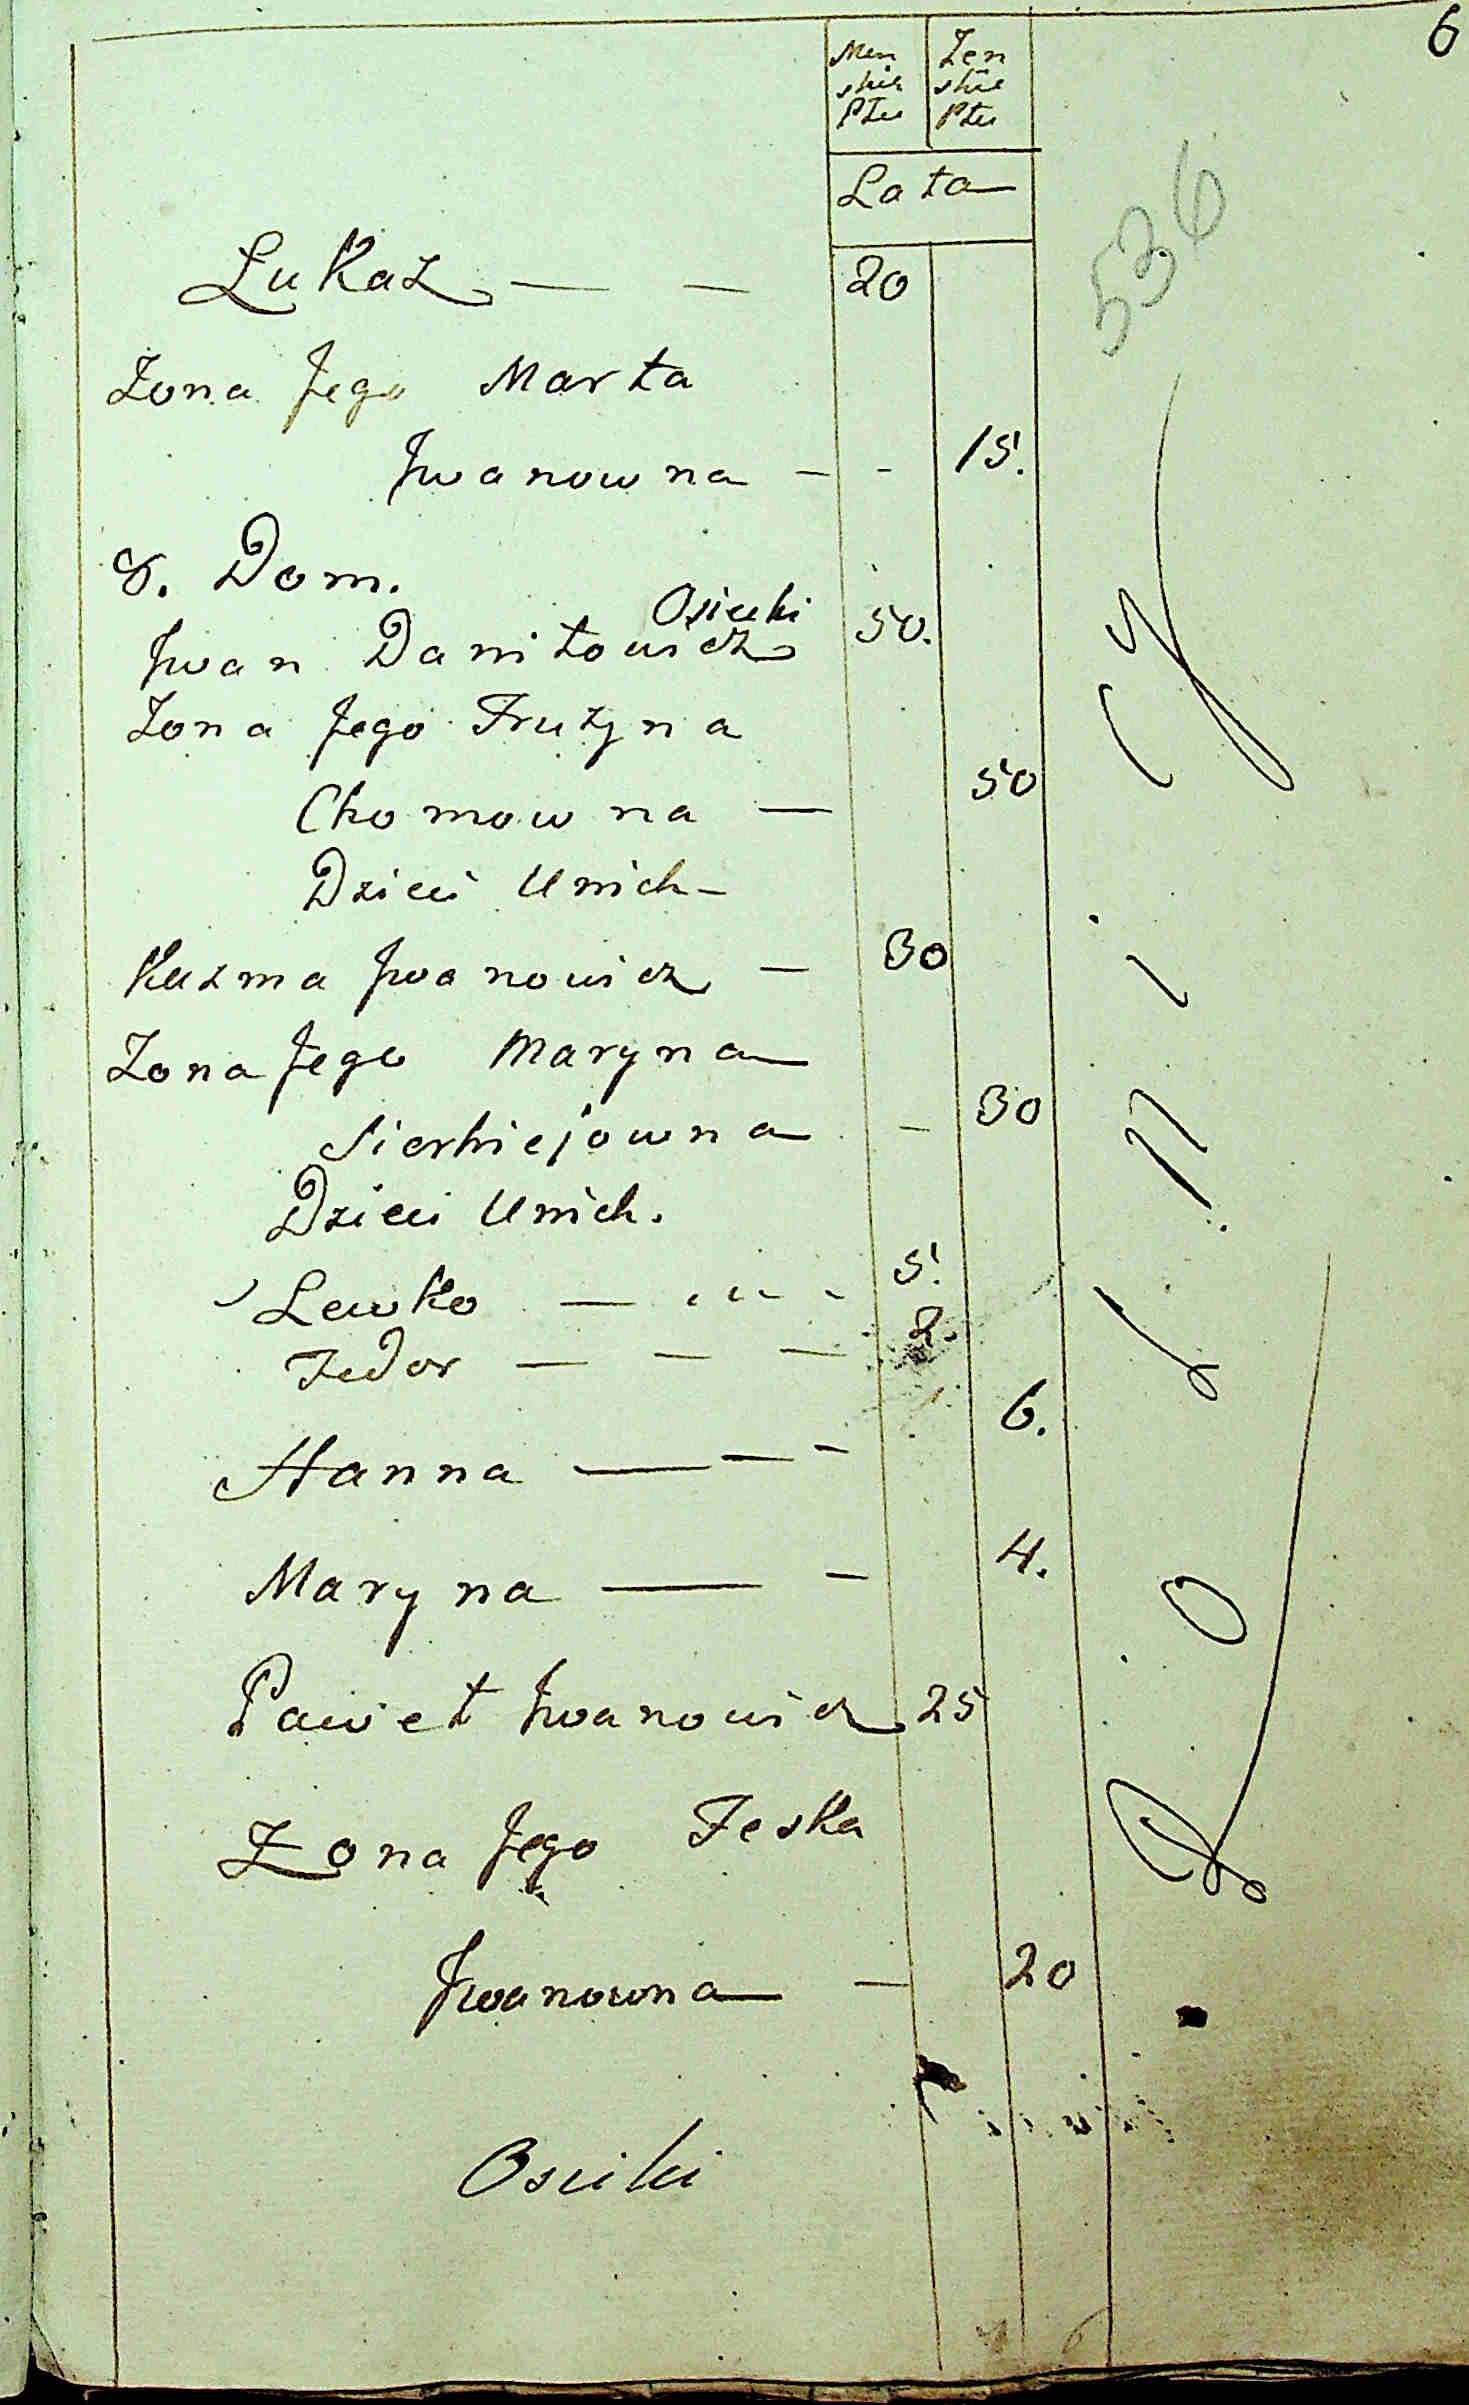 6
Men Zen
skie skie
Płu Płu
Lata
536
Lukaz — — 20
Zona Jego Marta
Jwanowna - - 15.
8. Dom.
Osiecki
Jwan Daniłowicz 50.
Zona Jego Fruzyna
Chomowna — 50
Dzieci Unich -
Kuzma Jwanowicz — 30
Zona Jego Maryna
Sierhiejowna - 30
Dzieci Unich.
Lewko — 5.
Fedor — — — 2.
Hanna — — - 6.
Maryna — - 4.
Paweł Jwanowicz 25
Zona Jego Feska
Jwanowna — 20